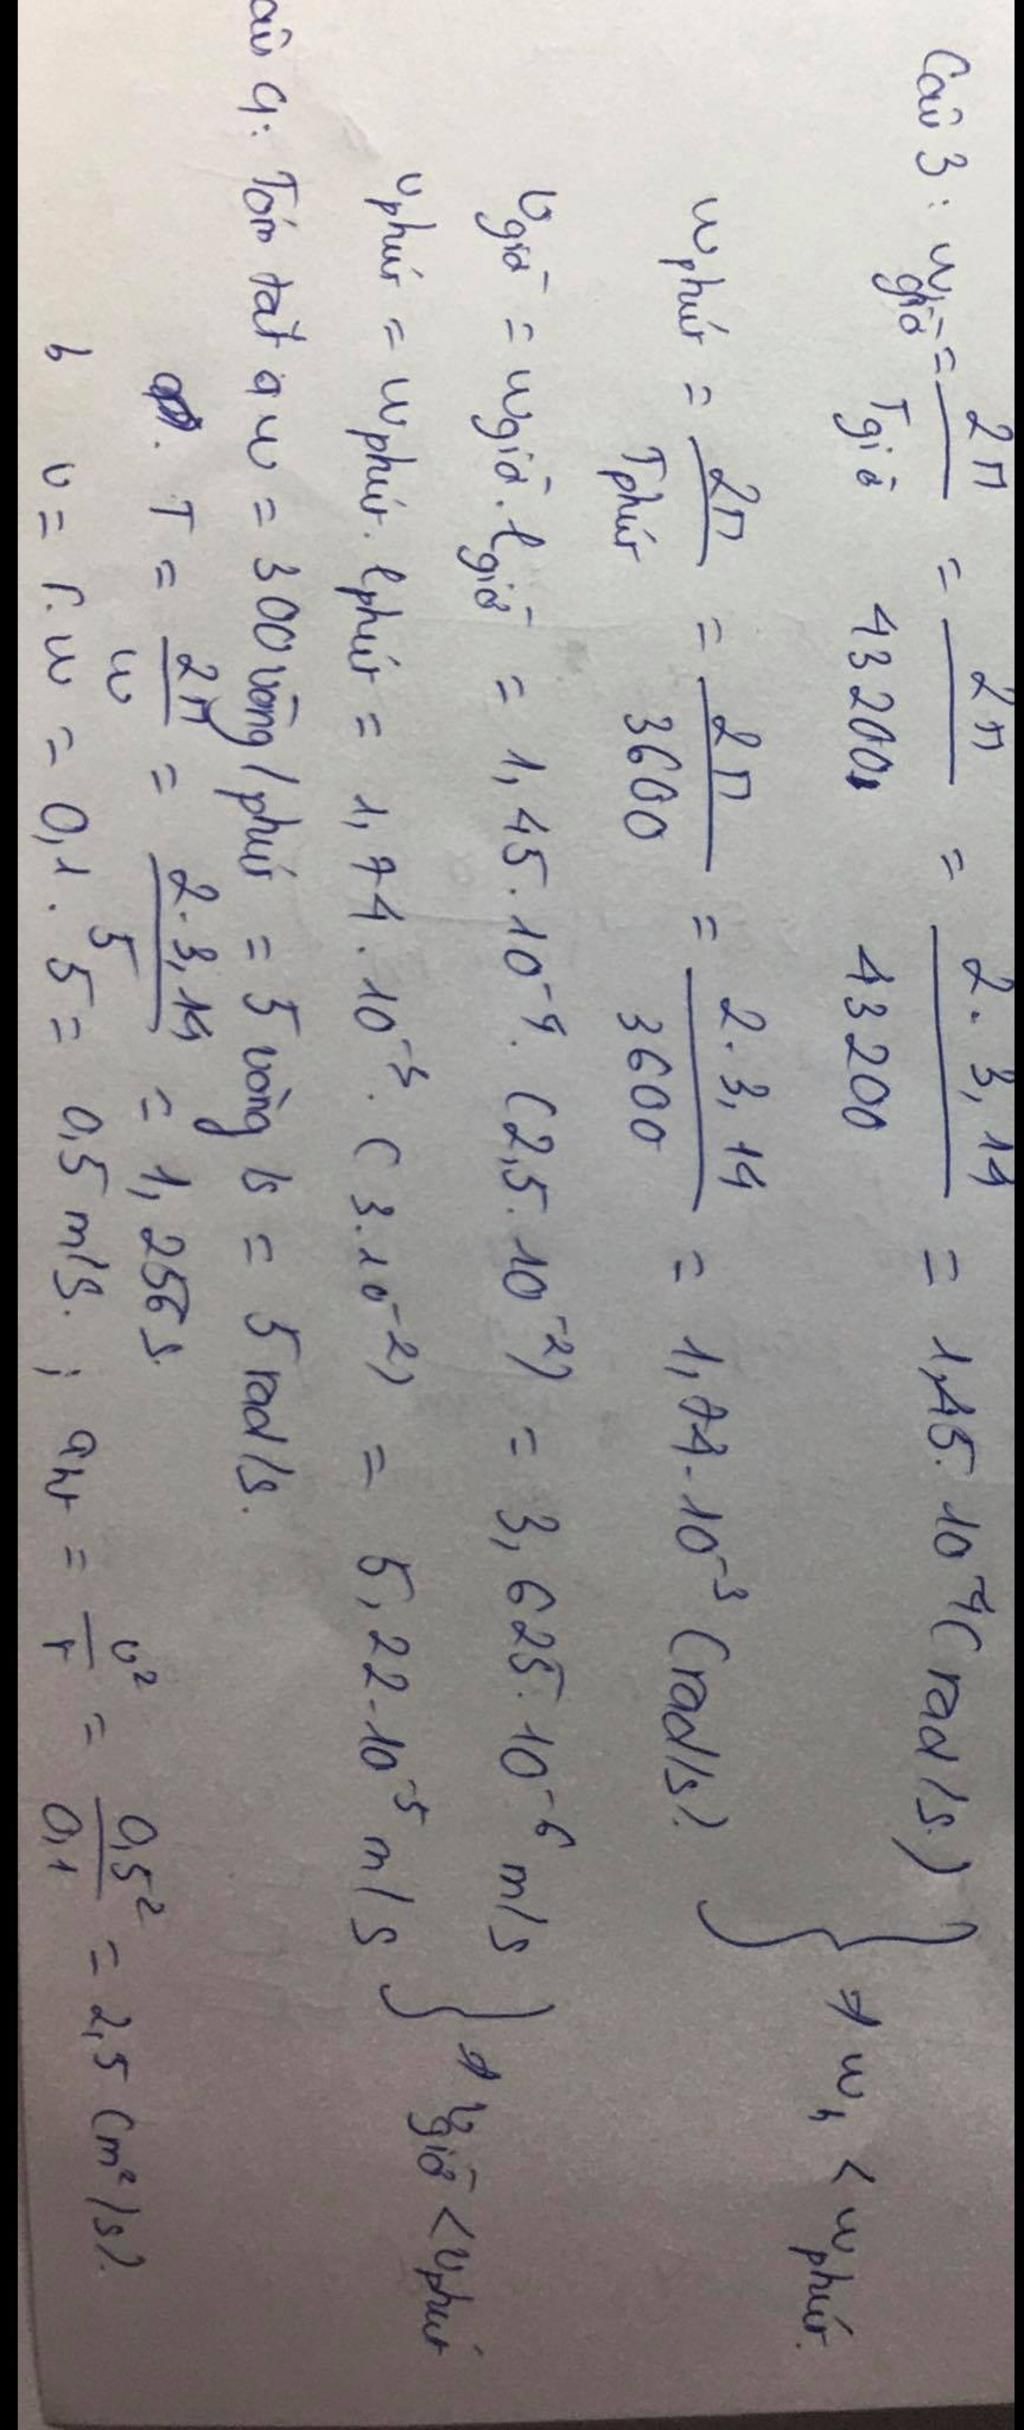 Câu 3: ω giờ = 2π / T giờ = 2π / 43200 = 2.3,14 / 43200 = 1,45.10⁻⁴ (rad/s)
ω phút = 2π / T phút = 2π / 3600 = 2.3,14 / 3600 = 1,74.10⁻³ (rad/s)
} → ω h < ω phút.
v giờ = ω giờ. l giờ = 1,45.10⁻⁴. (2,5.10⁻²) = 3,625.10⁻⁶ m/s
v phút = ω phút. l phút = 1,74.10⁻³. (3.10⁻²) = 5,22.10⁻⁵ m/s
} → v giờ < v phút
âu 4: Tóm tắt a ω = 300 vòng/phút = 5 vòng/s = 5 rad/s.
T = 2π / ω = 2.3,14 / 5 = 1,256 s
b v = r.ω = 0,1.5 = 0,5 m/s. ; aht = v² / r = 0,5² / 0,1 = 2,5 (m²/s).